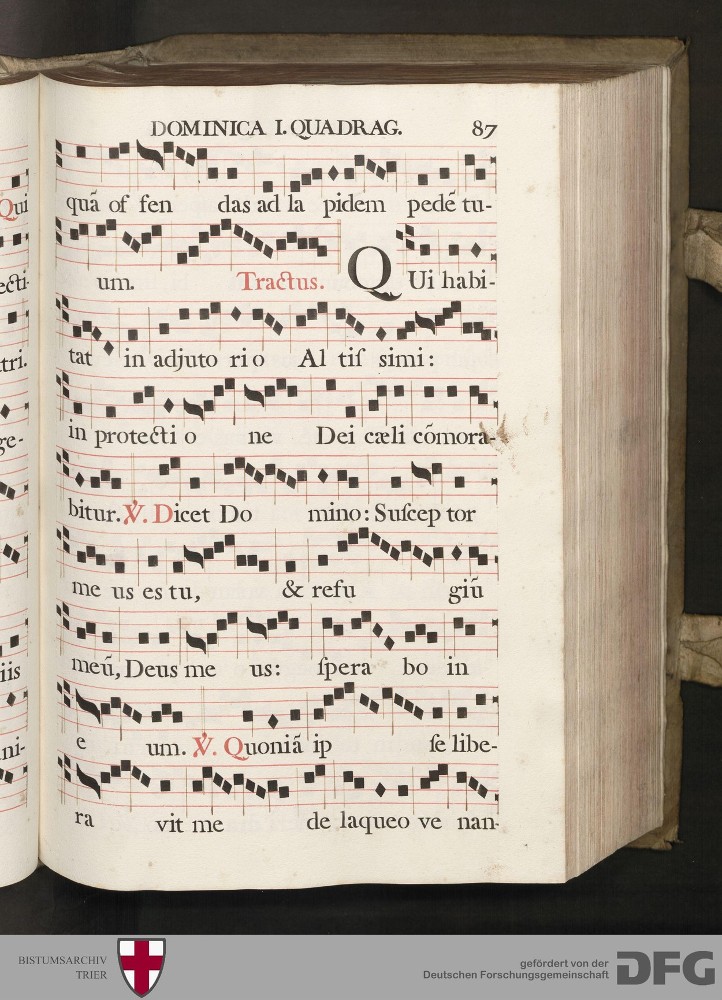 DOMINICA I. QUADRAG. 87
quã of fen das ad la pidem pedẽ tu-
um. Tractus. QUi habi-
tat in adjuto rio Al tiſ simi:
in protecti o ne Dei cæli cõmora-
bitur. ℣. Dicet Do mino: Suſcep tor
me us es tu, & refu giũ
meũ, Deus me us: ſpera bo in
e um. ℣. Quoniã ip ſe libe-
ra vit me de laqueo ve nan-
Qui
ecti-
tri.
ge-
iis
ni-
BISTUMSARCHIV
TRIER
gefördert von der
Deutschen Forschungsgemeinschaft
DFG